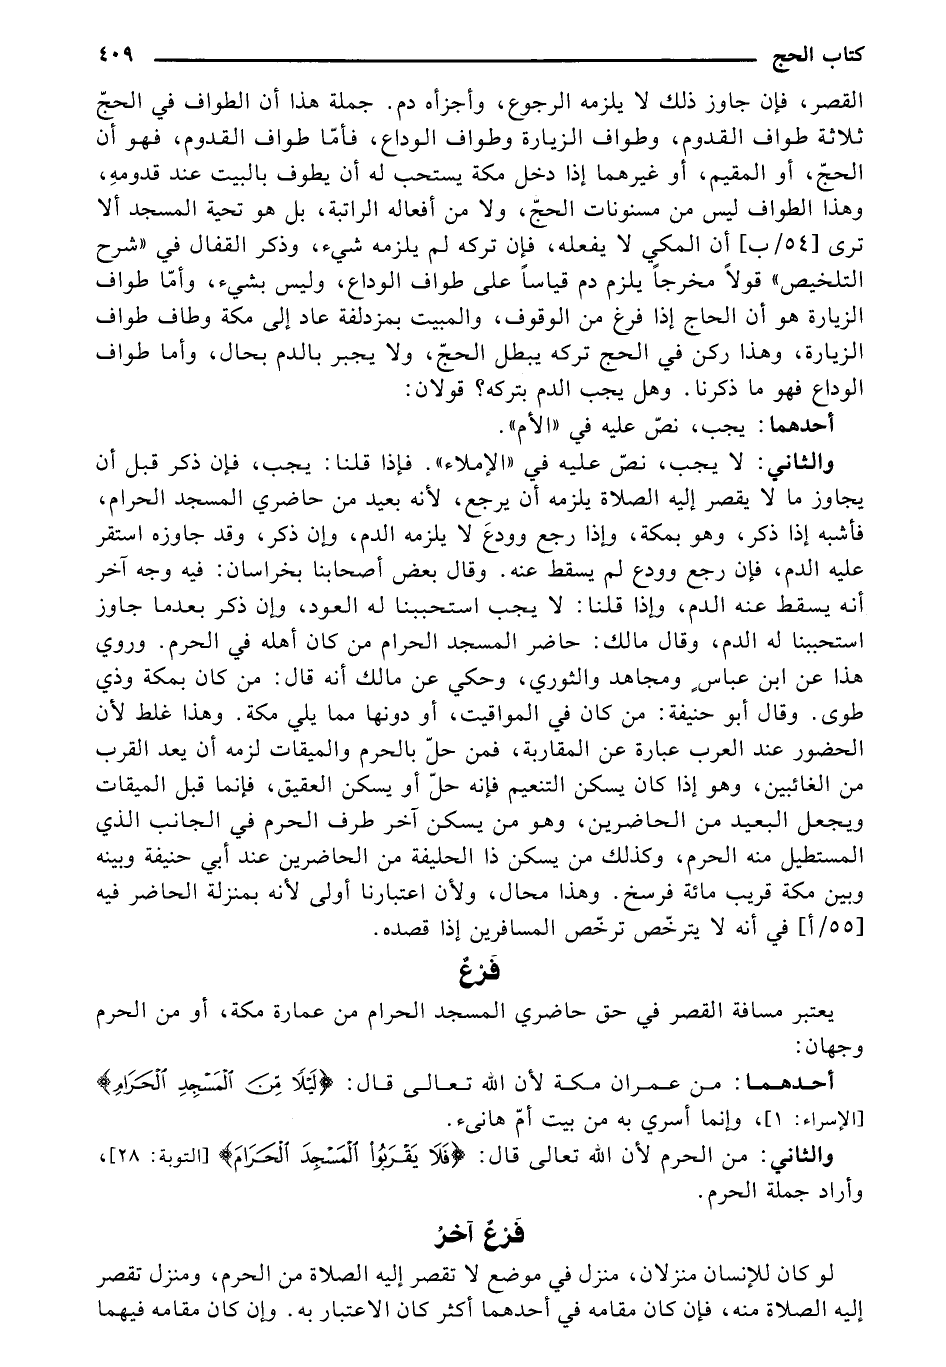 كتاب الحج ٤٠٩
القصر، فإن جاوز ذلك لا يلزمه الرجوع، وأجزأه دم. جملة هذا أن الطواف في الحجّ
ثلاثة طواف القدوم، وطواف الزيارة وطواف الوداع، فأمّا طواف القدوم، فهو أن
الحجّ، أو المقيم، أو غيرهما إذا دخل مكة يستحب له أن يطوف بالبيت عند قدومهِ،
وهذا الطواف ليس من مسنونات الحجّ، ولا من أفعاله الراتبة، بل هو تحية المسجد ألا
ترى [٥٤/ب] أن المكي لا يفعله، فإن تركه لم يلزمه شيء، وذكر القفال في «شرح
التلخيص» قولاً مخرجاً يلزم دم قياساً على طواف الوداع، وليس بشيء، وأمّا طواف
الزيارة هو أن الحاج إذا فرغ من الوقوف، والمبيت بمزدلفة عاد إلى مكة وطاف طواف
الزيارة، وهذا ركن في الحج تركه يبطل الحجّ، ولا يجبر بالدم بحال، وأما طواف
الوداع فهو ما ذكرنا. وهل يجب الدم بتركه؟ قولان:
أحدهما: يجب، نصّ عليه في «الأم».
والثاني: لا يجب، نصّ عليه في «الإملاء». فإذا قلنا: يجب، فإن ذكر قبل أن
يجاوز ما لا يقصر إليه الصلاة يلزمه أن يرجع، لأنه بعيد من حاضري المسجد الحرام،
فأشبه إذا ذكر، وهو بمكة، وإذا رجع وودعَ لا يلزمه الدم، وإن ذكر، وقد جاوزه استقر
عليه الدم، فإن رجع وودع لم يسقط عنه. وقال بعض أصحابنا بخراسان: فيه وجه آخر
أنه يسقط عنه الدم، وإذا قلنا: لا يجب استحببنا له العود، وإن ذكر بعدما جاوز
استحببنا له الدم، وقال مالك: حاضر المسجد الحرام من كان أهله في الحرم. وروي
هذا عن ابن عباسٍ ومجاهد والثوري، وحكي عن مالك أنه قال: من كان بمكة وذي
طوى. وقال أبو حنيفة: من كان في المواقيت، أو دونها مما يلي مكة. وهذا غلط لأن
الحضور عند العرب عبارة عن المقاربة، فمن حلّ بالحرم والميقات لزمه أن يعد القرب
من الغائبين، وهو إذا كان يسكن التنعيم فإنه حلّ أو يسكن العقيق، فإنما قبل الميقات
ويجعل البعيد من الحاضرين، وهو من يسكن آخر طرف الحرم في الجانب الذي
المستطيل منه الحرم، وكذلك من يسكن ذا الحليفة من الحاضرين عند أبي حنيفة وبينه
وبين مكة قريب مائة فرسخ. وهذا محال، ولأن اعتبارنا أولى لأنه بمنزلة الحاضر فيه
[٥٥/أ] في أنه لا يترخّص ترخّص المسافرين إذا قصده.
فَرْعٌ
يعتبر مسافة القصر في حق حاضري المسجد الحرام من عمارة مكة، أو من الحرم
وجهان:
أحدهما: من عمران مكة لأن الله تعالى قال: ﴿لَيْلًا مِّنَ ٱلْمَسْجِدِ ٱلْحَرَامِ﴾
[الإسراء: ١]، وإنما أسري به من بيت أمّ هانىء.
والثاني: من الحرم لأن الله تعالى قال: ﴿فَلَا يَقْرَبُوا۟ ٱلْمَسْجِدَ ٱلْحَرَامَ﴾ [التوبة: ٢٨]،
وأراد جملة الحرم.
فَرْعٌ آخرُ
لو كان للإنسان منزلان، منزل في موضع لا تقصر إليه الصلاة من الحرم، ومنزل تقصر
إليه الصلاة منه، فإن كان مقامه في أحدهما أكثر كان الاعتبار به. وإن كان مقامه فيهما